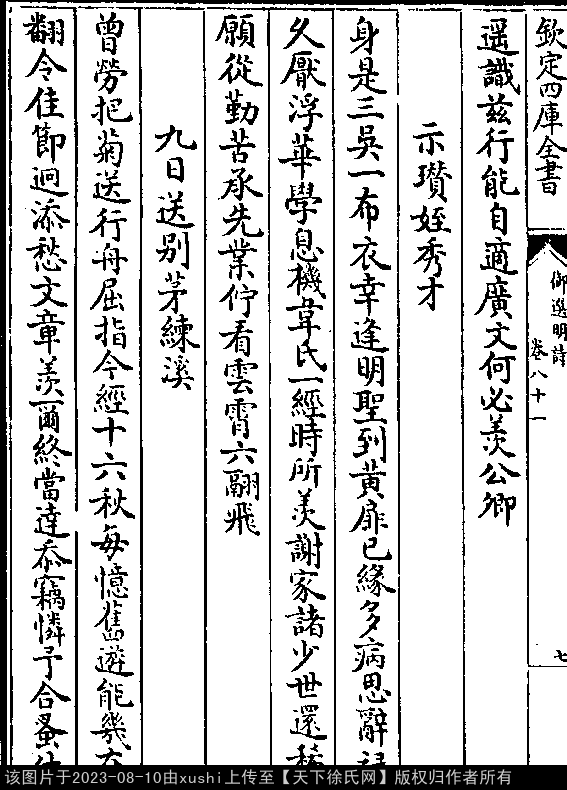 欽定四庫全書
御選明詩
卷八十一
七
遥識兹行能自適廣文何必羡公卿
示瓚姪秀才
身是三吳一布衣幸逢明聖到黄扉已緣多病思辭
久厭浮華學息機韋氏一經時所羡謝家諸少世還
願從勤苦承先業佇看雲霄六翮飛
九日送别茅練溪
曾勞把菊送行舟屈指今經十六秋每憶舊遊能幾
翻令佳節迥添愁文章羡爾終當達忝竊憐予合蚤
该图片于2023-08-10由xushi上传至【天下徐氏网】版权归作者所有